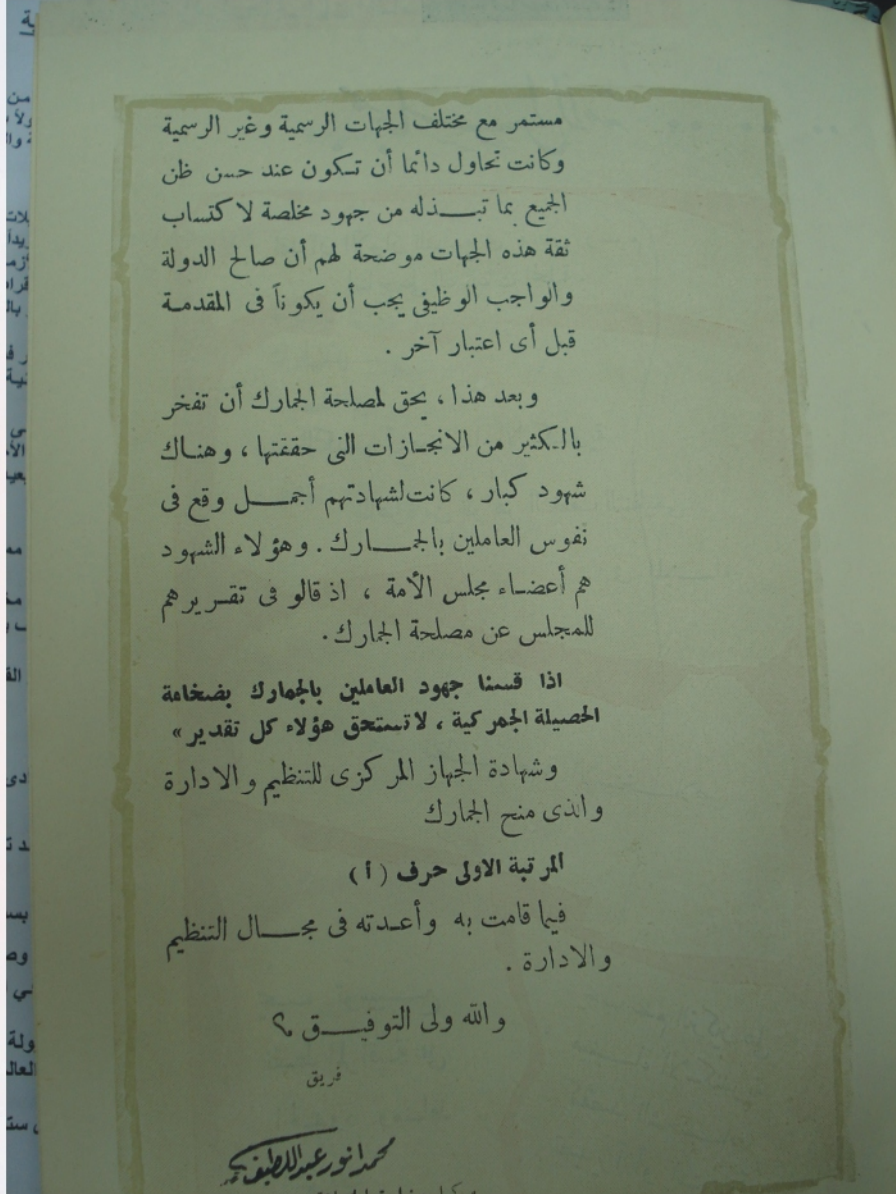 مستمر مع مختلف الجهات الرسمية وغير الرسمية
وكانت تحاول دائما أن تكون عند حسن ظن
الجميع بما تبــذله من جهود مخلصة لاكتساب
ثقة هذه الجهات موضحة لهم أن صالح الدولة
والواجب الوظيفى يجب أن يكوناً فى المقدمة
قبل أى اعتبار آخر .
وبعد هذا ، يحق لمصلحة الجمارك أن تفخر
بالكثير من الانجـازات التى حققتها ، وهنـاك
شهود كبار ، كانت لشهادتهم أجمــل وقع فى
نفوس العاملين بالجمــارك . وهؤلاء الشهود
هم أعضـاء مجلس الأمة ، اذ قالو فى تقـريرهم
للمجلس عن مصلحة الجمارك .
اذا قسنا جهود العاملين بالجمارك بضخامة
الحصيلة الجمركية ، لاتستحق هؤلاء كل تقدير »
وشهادة الجهاز المركزى للتنظيم والادارة
والذى منح الجمارك
المرتبة الاولى حرف ( أ )
فيما قامت به وأعـدته فى مجــال التنظيم
والادارة .
والله ولى التوفيــق ؟
فريق
محمد انور عبد اللطيف